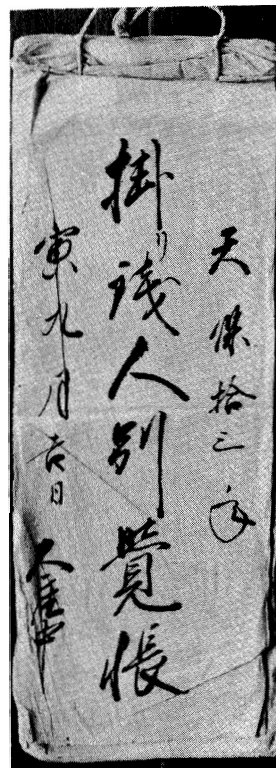 天保拾三年
掛り銭人別覺帳
寅九月吉日